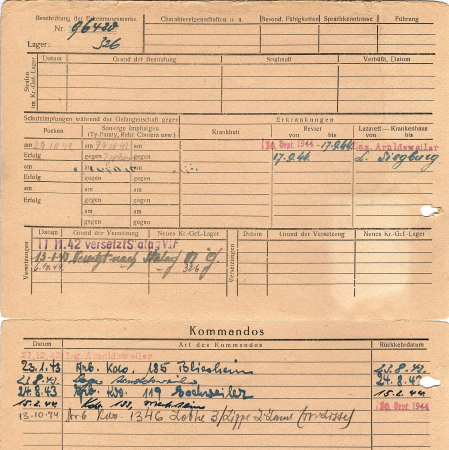 Beschriftung der Erkennungsmarke
Nr. 96420
Lager: 326
Charaktereigenschaften u. a.
Besond. Fähigkeiten
Sprachkenntnisse
Führung
Strafen im Kr.-Gef.-Lager
Datum
Grund der Bestrafung
Strafmaß
Verbüßt, Datum
Schutzimpfungen während der Gefangenschaft gegen
Erkrankungen
Pocken
Sonstige Impfungen
(Ty-Paraty, Ruhr, Cholera usw.)
Krankheit
Revier
von bis
Lazarett — Krankenhaus
von bis
am
am
am
Erfolg
gegen
gegen
am
am
am
Erfolg
gegen
gegen
am
am
gegen
gegen
am
am
gegen
gegen
Sept. 1944
17.9.44
Lag. Arnoldsweiler
17.9.44
L. Siegburg
Versetzungen
Datum
Grund der Versetzung
Neues Kr.-Gef.-Lager
Versetzungen
Datum
Grund der Versetzung
Neues Kr.-Gef.-Lager
11.11.42 versetzt Stalag VI F
Versetzt nach Stalag VI G
326
Kommandos
Datum
Art des Kommandos
Rückkehrdatum
21.12.42 Lag. Arnoldsweiler
23.1.43 Arb. Kdo. 185 Bliesheim
21.8.43
21.8.43 Lager Arnoldsweiler
24.8.43
24.8.43 Arb. Kdo 119 Eschweiler
15.2.44
15.2.44 Kdo
Sept. 1944
13-10-44 Arb Kdo. 1346